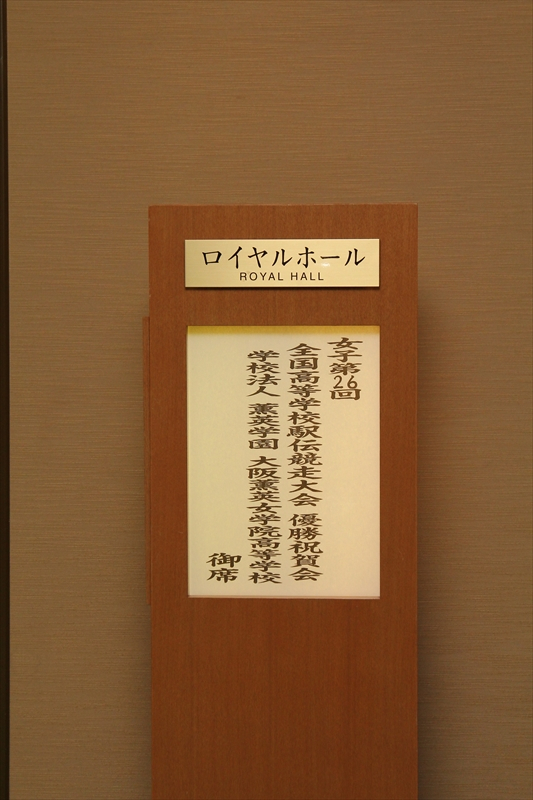 ロイヤルホール
ROYAL HALL
女子第26回
全国高等学校駅伝競走大会 優勝祝賀会
学校法人 薫英学園 大阪薫英女学院高等学校
御席